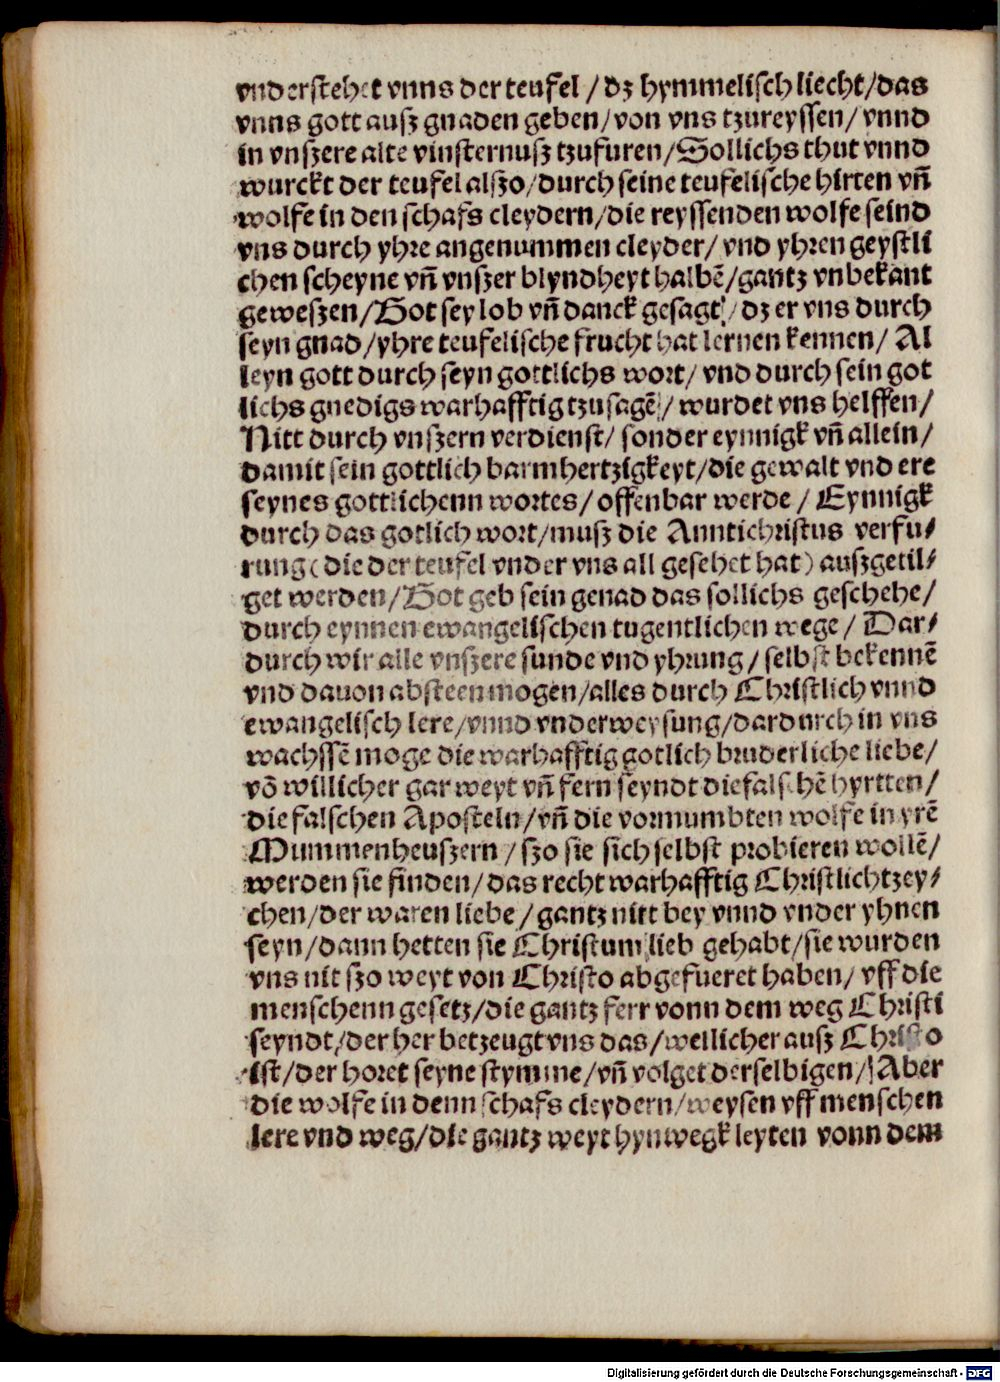 vnderstehet vnns der teufel / dz hymmelisch liecht/das
vnns gott ausz gnaden geben/von vns tzureyssen/ vnnd
in vnszere alte vinsternusz tzufuren/Sollichs thut vnnd
wurckt der teufel alszo/durch seine teufelische hirten vñ
wolfe in den schafs cleydern/die reyssenden wolfe seind
vns durch yhre angenummen cleyder/ vnd yhren geystli
chen scheyne vñ vnszer blyndheyt halbẽ/gantz vnbekant
geweszen/Got sey lob vñ danck gesagt/ dz er vns durch
seyn gnad/yhre teufelische frucht hat lernen kennen/ Al
leyn gott durch seyn gottlichs wort/ vnd durch sein got
lichs gnedigs warhafftig tzusagẽ/ wurdet vns helffen/
Nitt durch vnszern verdienst/ sonder eynnigk vñ allein/
damit sein gottlich barmhertzigkeyt/die gewalt vnd ere
seynes gottlichenn wortes/ offenbar werde / Eynnigk
durch das gotlich wort/musz die Anntichristus verfu⸗
rung(die der teufel vnder vns all gesehet hat) auszgetil⸗
get werden/Got geb sein genad das sollichs geschehe/
durch eynnen ewangelischen tugentlichen wege / Dar⸗
durch wir alle vnszere sunde vnd yhrung/ selbst bekennẽ
vnd dauon absteen mogen/alles durch Christlich vnnd
ewangelisch lere/vnnd vnderweysung/dardurch in vns
wachssẽ moge die warhafftig gotlich bruderliche liebe/
võ willicher gar weyt vñ fern seyndt die falschẽ hyrtten/
die falschen Aposteln/vñ die vormumbten wolfe in yrẽ
Mummenheuszern / szo sie sich selbst probieren wollẽ/
werden sie finden/das recht warhafftig Christlich tzey⸗
chen/der waren liebe/ gantz nitt bey vnnd vnder yhnen
seyn/dann hetten sie Christum lieb gehabt/sie wurden
vns nit szo weyt von Christo abgefueret haben/ vff die
menschenn gesetz/die gantz ferr vonn dem weg Christi
seyndt/der her betzeugt vns das/wellicher ausz Christo
ist/der horet seyne stymme/vñ volget derselbigen/Aber
die wolfe in denn schafs cleydern/weysen vff menschen
lere vnd weg/die gantz weyt hynwegk leyten vonn dem
Digitalisierung gefördert durch die Deutsche Forschungsgemeinschaft - DFG